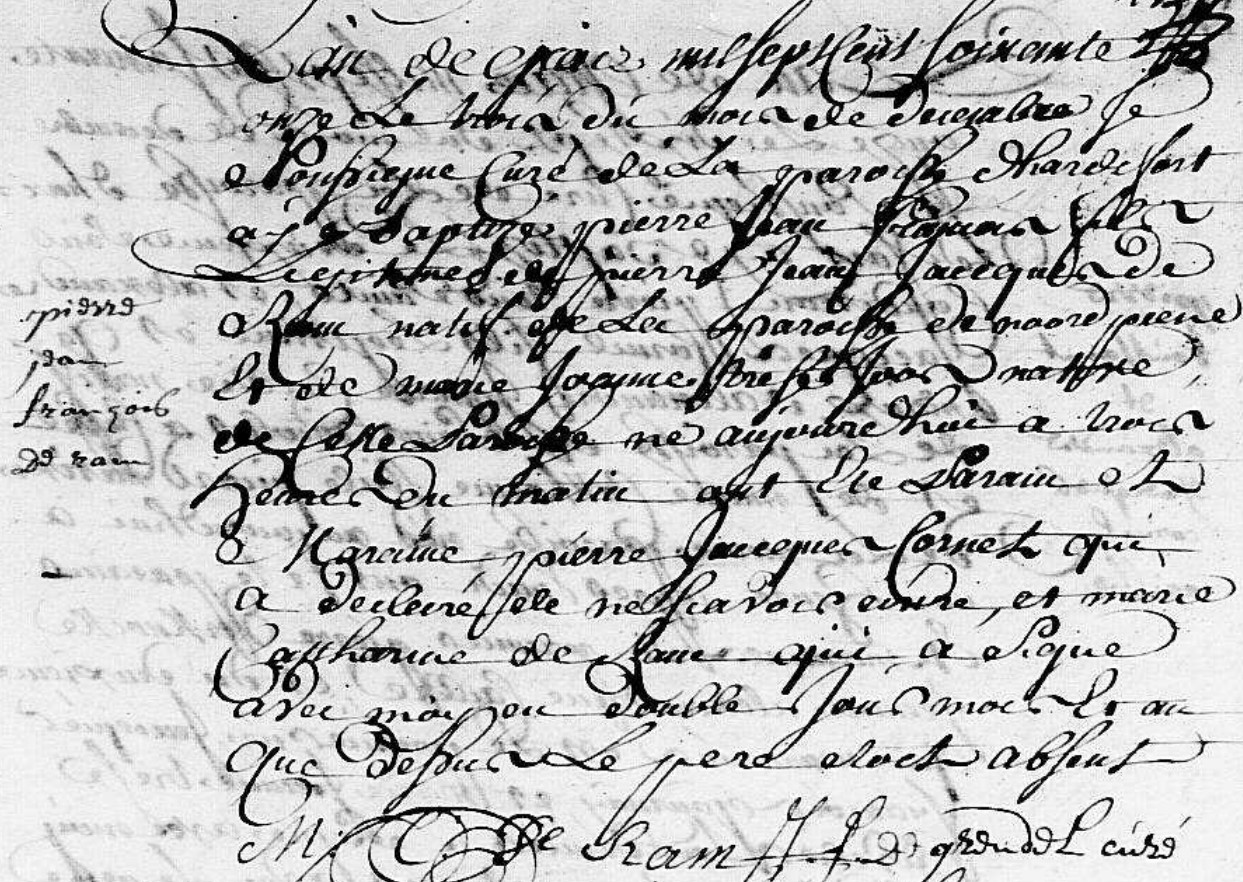 L'an de grace mil sept Cent soixante
onze Le trois du mois de decembre je
soussigne Curé de La paroisse dhardifort
ay baptize pierre Jean françois fils
Legitime de pierre Jean Jacques de
Ram natif de La paroisse de noordpeene
Et de marie Joos native
de Cette Paroisse ne aujourdhui a trois
heures du matin ont Ete Parain et
Maraine pierre Jacques Cornet qui
a declaré de ne scavoir ecrire, et marie
Catharine de Ram qui a signe
avec moy en double Jour mois Et an
que dessus Le pere etoit absent
pierre
jean
françois
De ram
M: C: De Ram J: F: De grendel curé